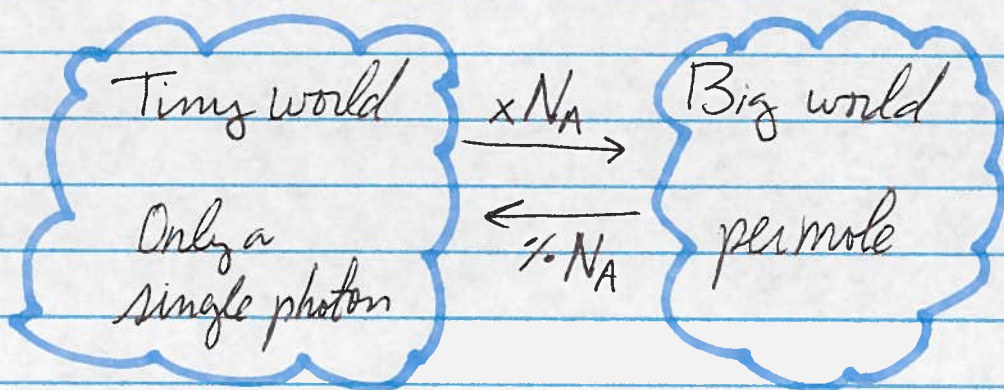 Tiny world
Only a
single photon
x N_A
% N_A
Big world
per mole